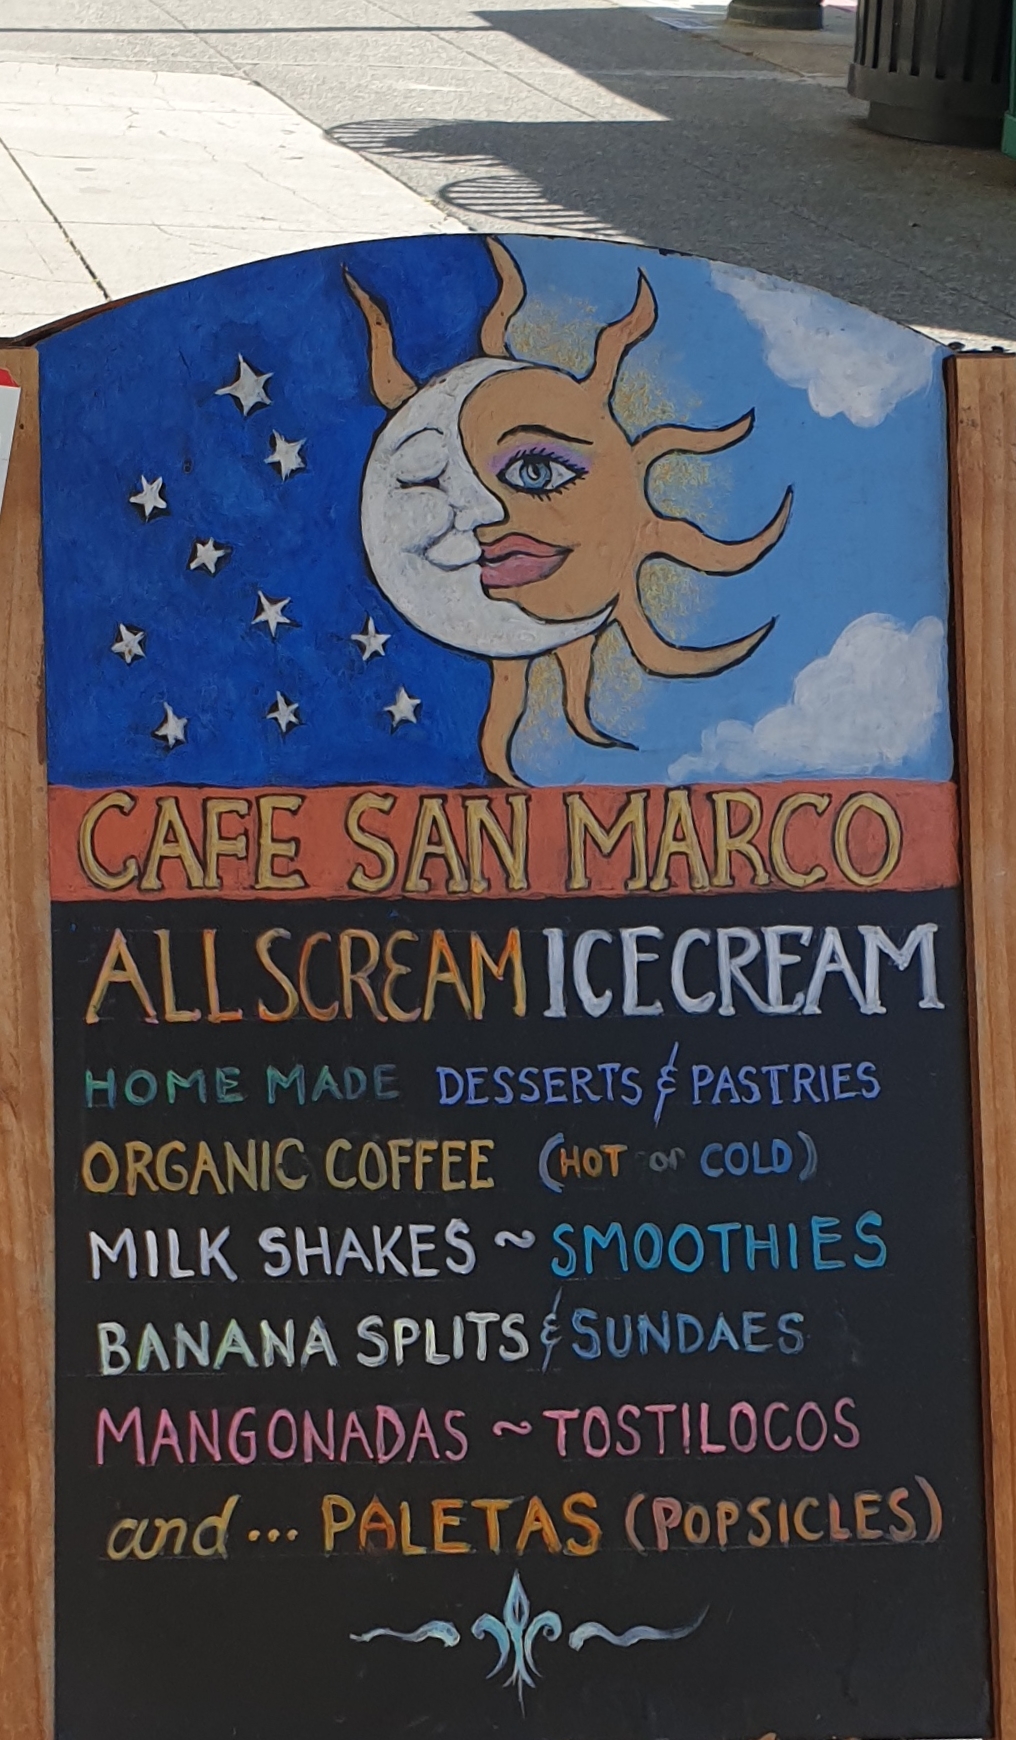 CAFE SAN MARCO
ALL SCREAM ICE CREAM
HOME MADE DESSERTS & PASTRIES
ORGANIC COFFEE (HOT or COLD)
MILK SHAKES ~ SMOOTHIES
BANANA SPLITS & SUNDAES
MANGONADAS ~ TOSTILOCOS
and... PALETAS (POPSICLES)